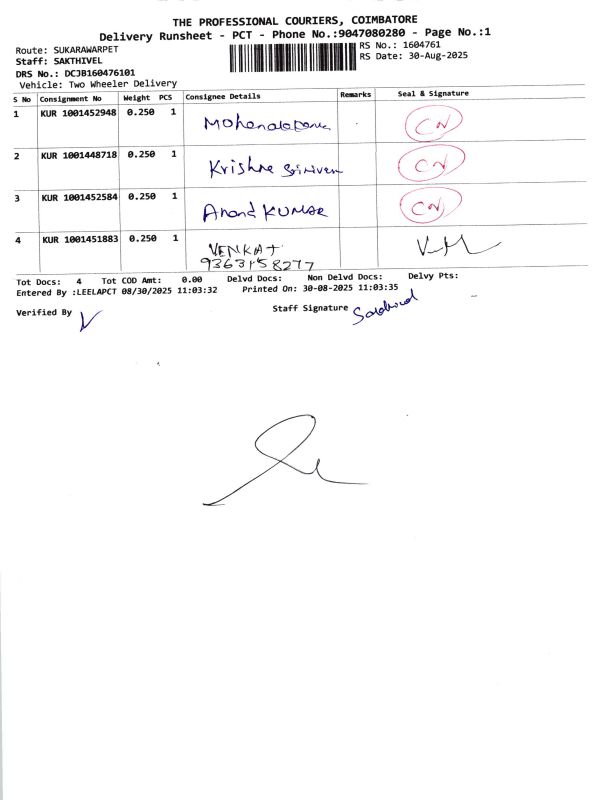 THE PROFESSIONAL COURIERS, COIMBATORE
Delivery Runsheet - PCT - Phone No.:9047080280 - Page No.:1
Route: SUKARAWARPET
RS No.: 1604761
Staff: SAKTHIVEL
RS Date: 30-Aug-2025
DRS No.: DCJB160476101
Vehicle: Two Wheeler Delivery
S No Consignment No Weight PCS Consignee Details Remarks Seal & Signature
1 KUR 1001452948 0.250 1 CN
2 KUR 1001448718 0.250 1 Krishna CN
3 KUR 1001452584 0.250 1 Anand KUMAR CN
4 KUR 1001451883 0.250 1 VENKAT
9363158277
Tot Docs: 4 Tot COD Amt: 0.00 Delvd Docs: Non Delvd Docs: Delvy Pts:
Entered By :LEELAPCT 08/30/2025 11:03:32 Printed On: 30-08-2025 11:03:35
Verified By Staff Signature